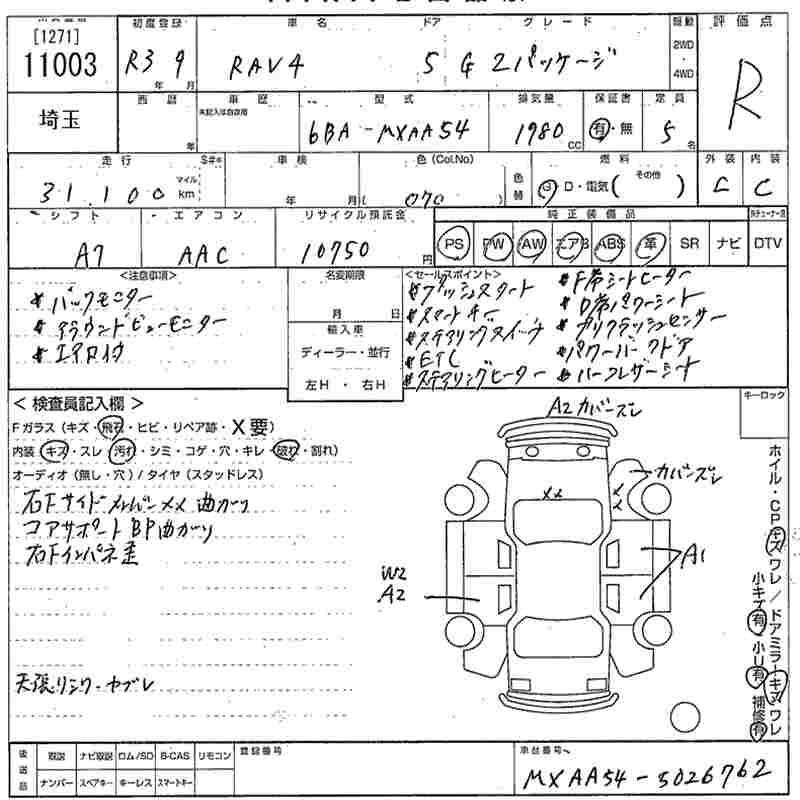 [1271]
11003
埼玉
初度登録
R3 9
年 月
車名
RAV4
ドア
5
グレード
G Zパッケージ
駆動
2WD
・
4WD
評価点
R
西暦
年
車歴
未記入は自家用
型式
6BA-MXAA54
排気量
1980
CC
保証書
有・無
定員
5
名
走行
S#*
31,100
マイル
km
車検
年 月
色(Col.No)
( 070 )
色替
燃料
G・D・電気( その他 )
外装
C
内装
C
シフト
A7
エアコン
AAC
リサイクル預託金
10750
円
純正装備品
PS PW AW エアB ABS 革 SR ナビ DTV
<注意事項>
* バックモニター
* アラウンドビューモニター
* エアロイヤ
名変期限
月 日
輸入車
ディーラー・並行
左H ・ 右H
<セールスポイント>
* プッシュスタート
* スマートキー
* ステアリングスイッチ
* ETC
* ステアリングヒーター
* F席シートヒーター
* D席パワーシート
* クリアランスセンサー
* パワーバックドア
* ハーフレザーシート
<検査員記入欄>
Fガラス(キズ・飛石・ヒビ・リペア跡・X要)
内装(キズ・スレ・汚れ・シミ・コゲ・穴・キレ・破れ・割れ)
オーディオ(無し・穴)/タイヤ(スタッドレス)
右Fサイドメンバーメメ 曲がり
コアサポートBP曲がり
右Fインパネ歪
天張りシワ・ヤブレ
A2 カバーズレ
カバーズレ
メメ
メメ
A1
W2
A2
キーロック
ホイル・CPキズ ワレ/ドアミラーキズ ワレ
小キズ有 小U有 補修有
後送品
取説 ナビ取説 ロム/SD B-CAS リモコン
ナンバー スペアキー キーレス スマートキー
登録番号
車台番号
MXAA54-5026762